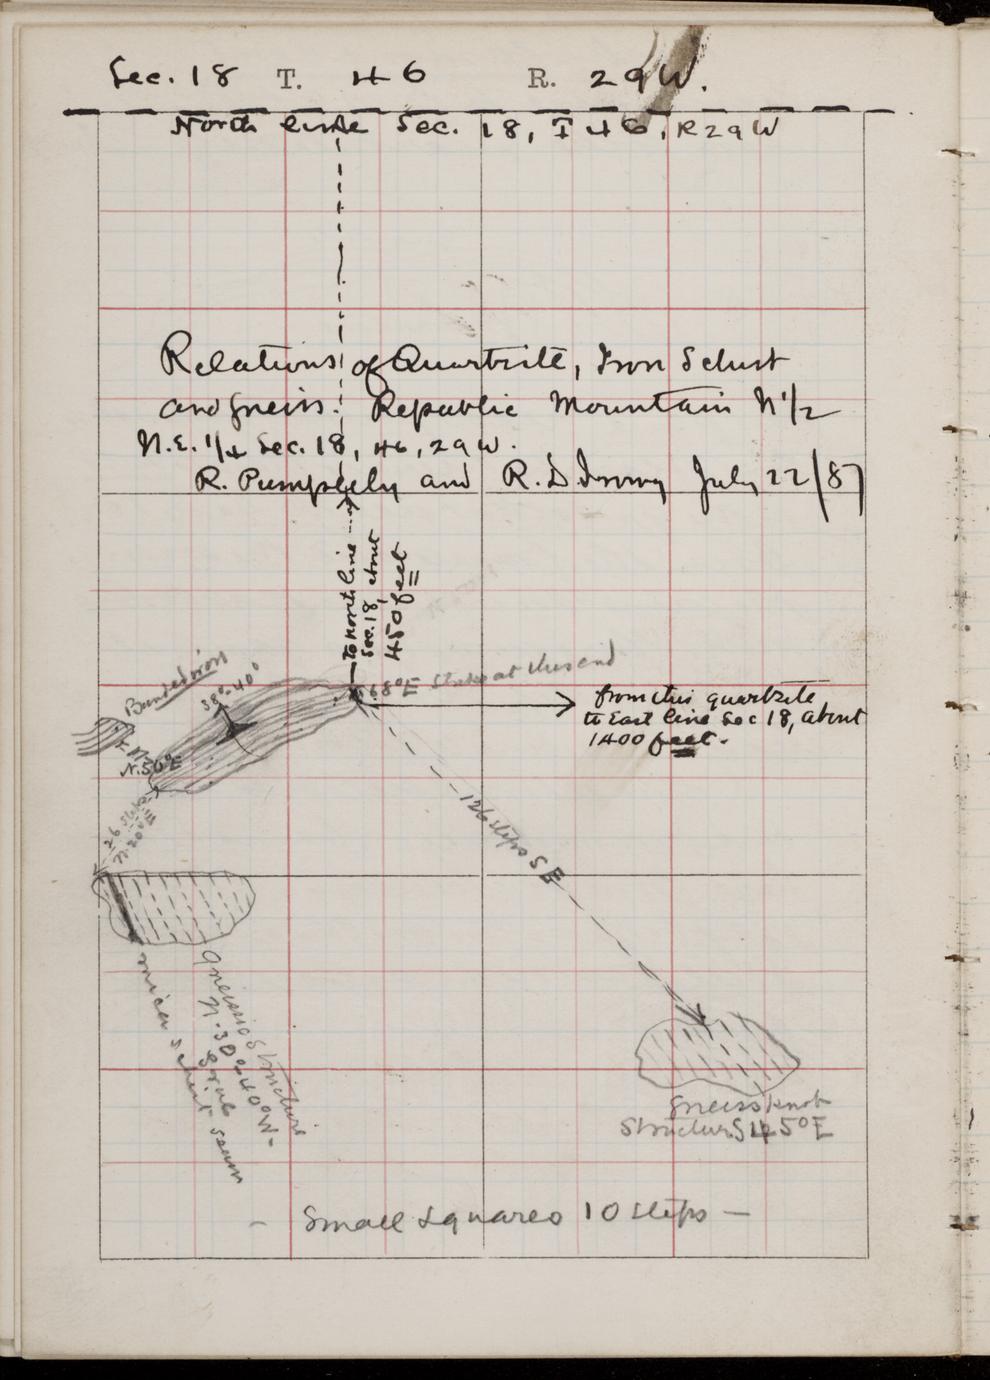 Sec. 18 T. 46 R. 29W.
North line Sec. 18, T 46, R 29 W
Relations of Quartzite, Iron Schist
and gneiss. Republic Mountain N 1/2
N.E. 1/4 Sec. 18, 46, 29 W.
R. Pumpelly and R. D Irving July 22/87
to north line
Sec. 18, about
450 feet
Banded iron
38°-40°
68°E Strike at this end
from this quartzite
to East line Sec 18, about
1400 feet.
N. 50°E
26 steps
N. 20°E
126 steps S E
gneissic structure
N. 30° 40° W-
mica schist seam
gneiss knob
Structure S 45°E
- Small squares 10 steps -